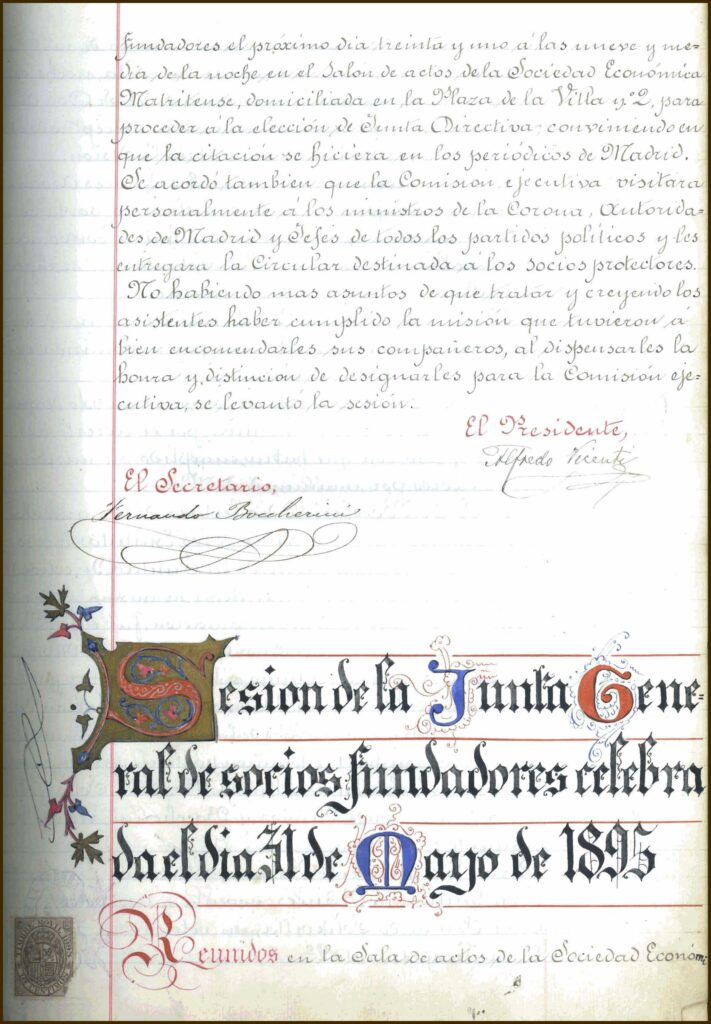 fundadores el próximo dia treinta y uno á las nueve y me-
dia de la noche en el Salon de actos de la Sociedad Económica
Matritense, domiciliada en la Plaza de la Villa nº 2, para
proceder á la elección de Junta Directiva; conviniendo en
que la citación se hiciera en los periódicos de Madrid.
Se acordó tambien que la Comision ejecutiva visitára
personalmente á los ministros de la Corona, Autorida-
des de Madrid y Jefes de todos los partidos políticos y les
entregara la Circular destinada á los socios protectores.
No habiendo mas asuntos de que tratar y creyendo los
asistentes haber cumplido la misión que tuvieron á
bien encomendarles sus compañeros, al dispensarles la
honra y distinción de designarles para la Comisión eje-
cutiva, se levantó la sesión.
El Presidente,
Alfredo Vicenti
El Secretario,
Fernando Boccherini
Sesion de la Junta Gene-
ral de socios fundadores celebra
da el dia 31 de Mayo de 1895
Reunidos en la Sala de actos de la Sociedad Económi